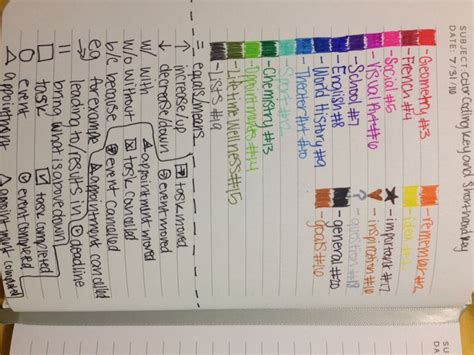 SUBJECT: color coding beyond shorthand key
DATE: 7/31/10
-Geometry #3
-French #4
-Social #5
-Visual Art
-School #7
-English #8
-World History #9
-Theater Art #10
-Sport #12
-Chemistry #13
-Opportunities #14
-Lifetime Wellness #15
-Lists #19
-remember #2
-idea #1
-important #17
-inspiration
-question #18
-general #20
-goals #16
= equals/means
↑ increase/up
↓ decrease/down
w/ with
w/o without
b/c because
e.g. for example
→ leading to/results in
|| bring what is above down
□ task
○ event
△ appointment
task moved
event moved
appointment moved
task cancelled
event cancelled
appointment cancelled
deadline
task completed
event completed
appointment completed
SU
DA